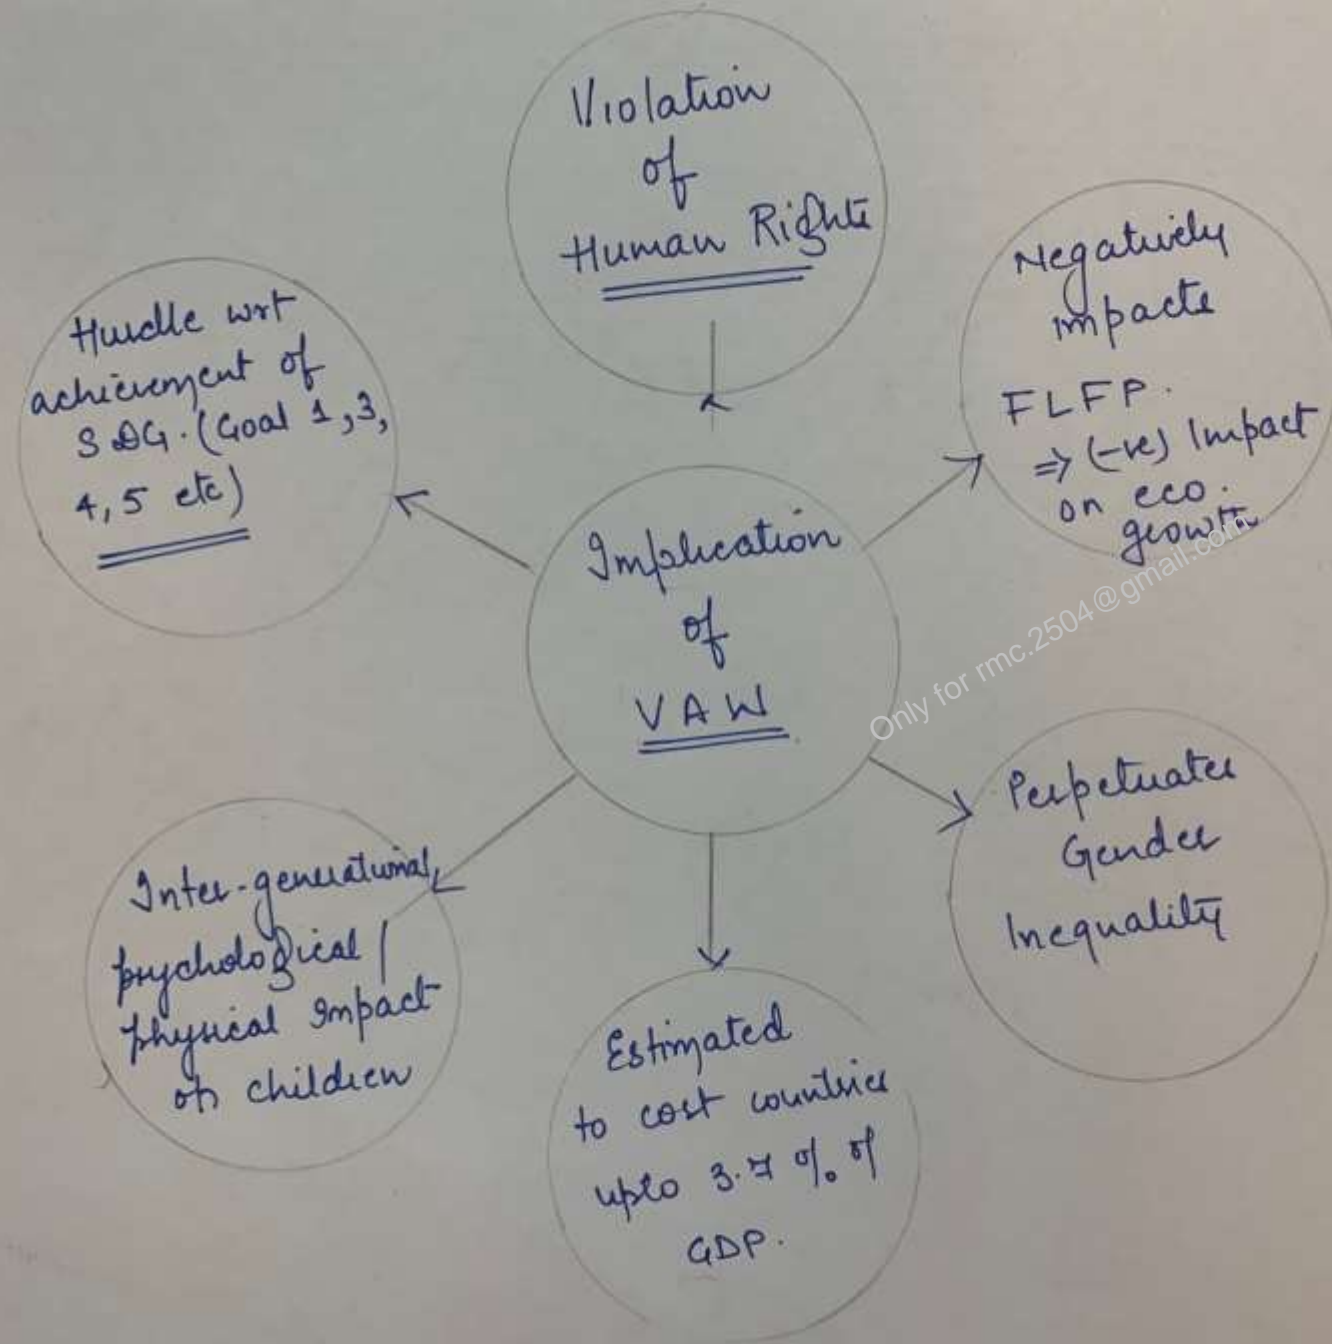 Violation
of
Human Rights
Negatively
impacts
FLFP.
⇒ (-ve) Impact
on eco.
growth
Hurdle wrt
achievement of
SDG. (Goal 1, 3,
4, 5 etc)
Implication
of
VAW
Only for rmc.2504@gmail.com
Perpetuates
Gender
Inequality
Inter-generational,
psychological /
physical impact
on children
Estimated
to cost countries
upto 3.7 % of
GDP.